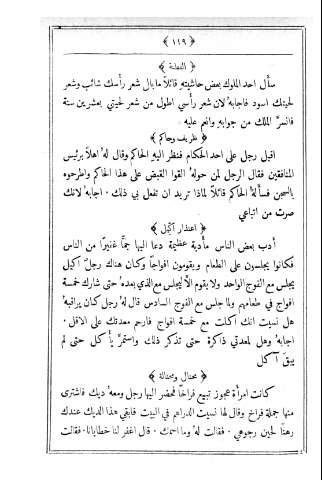 ﴿ ١١٩ ﴾
﴿ الفطنة ﴾
سأل احد الملوك بعض حاشيته قائلاً ما بال شعر رأسك شائب وشعر
لحيتك اسود فاجابهُ لان شعر رأسي اطول من شعر لحيتي بعشرين سنة
فانسرَّ الملك من جوابهِ وانعم عليه
﴿ ظريف وحاكم ﴾
اقبل رجل على احد الحكام فنظر اليهِ الحاكم وقال لهُ اهلاً برئيس
المنافقين فقال الرجل لمن حولهُ القوا القبض على هذا الحاكم واطرحوه
بالسجن فسألهُ الحاكم قائلاً لماذا تريد ان تفعل بي ذلك . اجابهُ لانك
صرت من اتباعي
﴿ اعتذار آكيل ﴾
أدب بعض الناس مأدبة عظيمة دعا اليها جمًّا غفيرًا من الناس
فكانوا يجلسون على الطعام ويقومون افواجًا وكان هناك رجلٌ اكيل
يجلس مع الفوج الواحد ولا يقوم الَّا ليجلس مع الذي بعدهُ حتى شارك خمسة
افواج في طعامهم ولما جلس مع الفوج السادس قال لهُ رجل كان يراقبهُ
هل نسيت انك اكلت مع خمسة افواج فارحم معدتك على الاقل .
اجابهُ وهل لمعدتي ذاكرة حتى تذكر ذلك واستمرَّ يأكل حتى لم
يبقَ آكل
﴿ محتال ومحتالة ﴾
كانت امرأة عجوز تبيع فراخًا فحضر اليها رجل ومعهُ ديك فاشترى
منها جملة فراخ وقال لها نسيت الدراهم في البيت فابقي هذا الديك عندك
رهنًا لحين رجوعي . فقالت لهُ وما اسمك . قال اغفر لنا خطايانا . فقالت